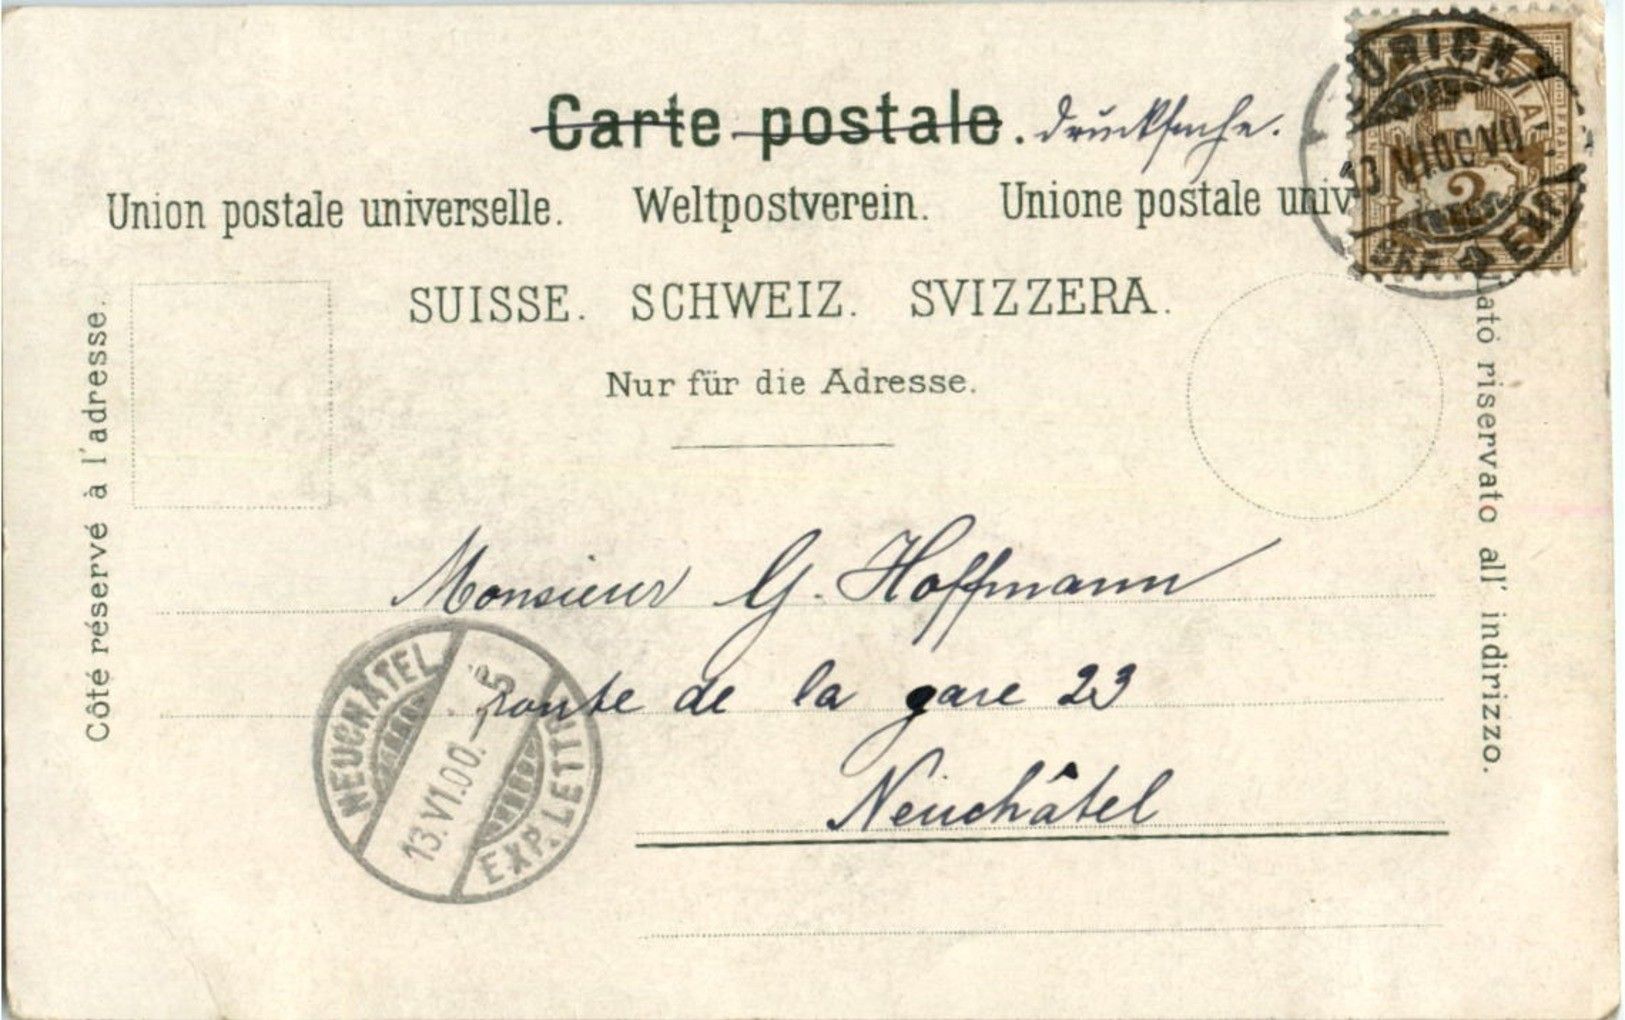 Carte postale. Drucksache.
Union postale universelle. Weltpostverein. Unione postale univ
SUISSE. SCHWEIZ. SVIZZERA.
Nur für die Adresse.
Côté réservé à l'adresse.
Lato riservato all' indirizzo.
2
Monsieur G. Hoffmann
route de la gare 23
Neuchâtel
NEUCHÂTEL
13.VI.00.–5
EXP. LETTR.